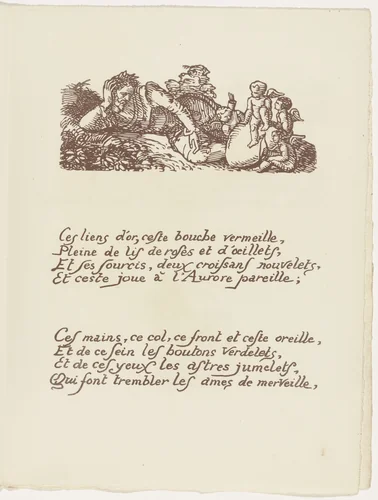 Ces liens d'or, ceste bouche vermeille,
Pleine de lis de roses et d'œillets,
Et ses sourcis, deux croissans nouvelets,
Et ceste joue à l'Aurore pareille;
Ces mains, ce col, ce front et ceste oreille,
Et de ce sein les boutons verdelets,
Et de ces yeux les astres jumelets,
Qui font trembler les ames de merveille,